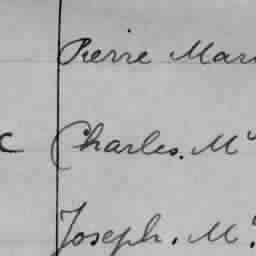 Pierre Mari
c Charles. Mʳ
Joseph. Mʳ.